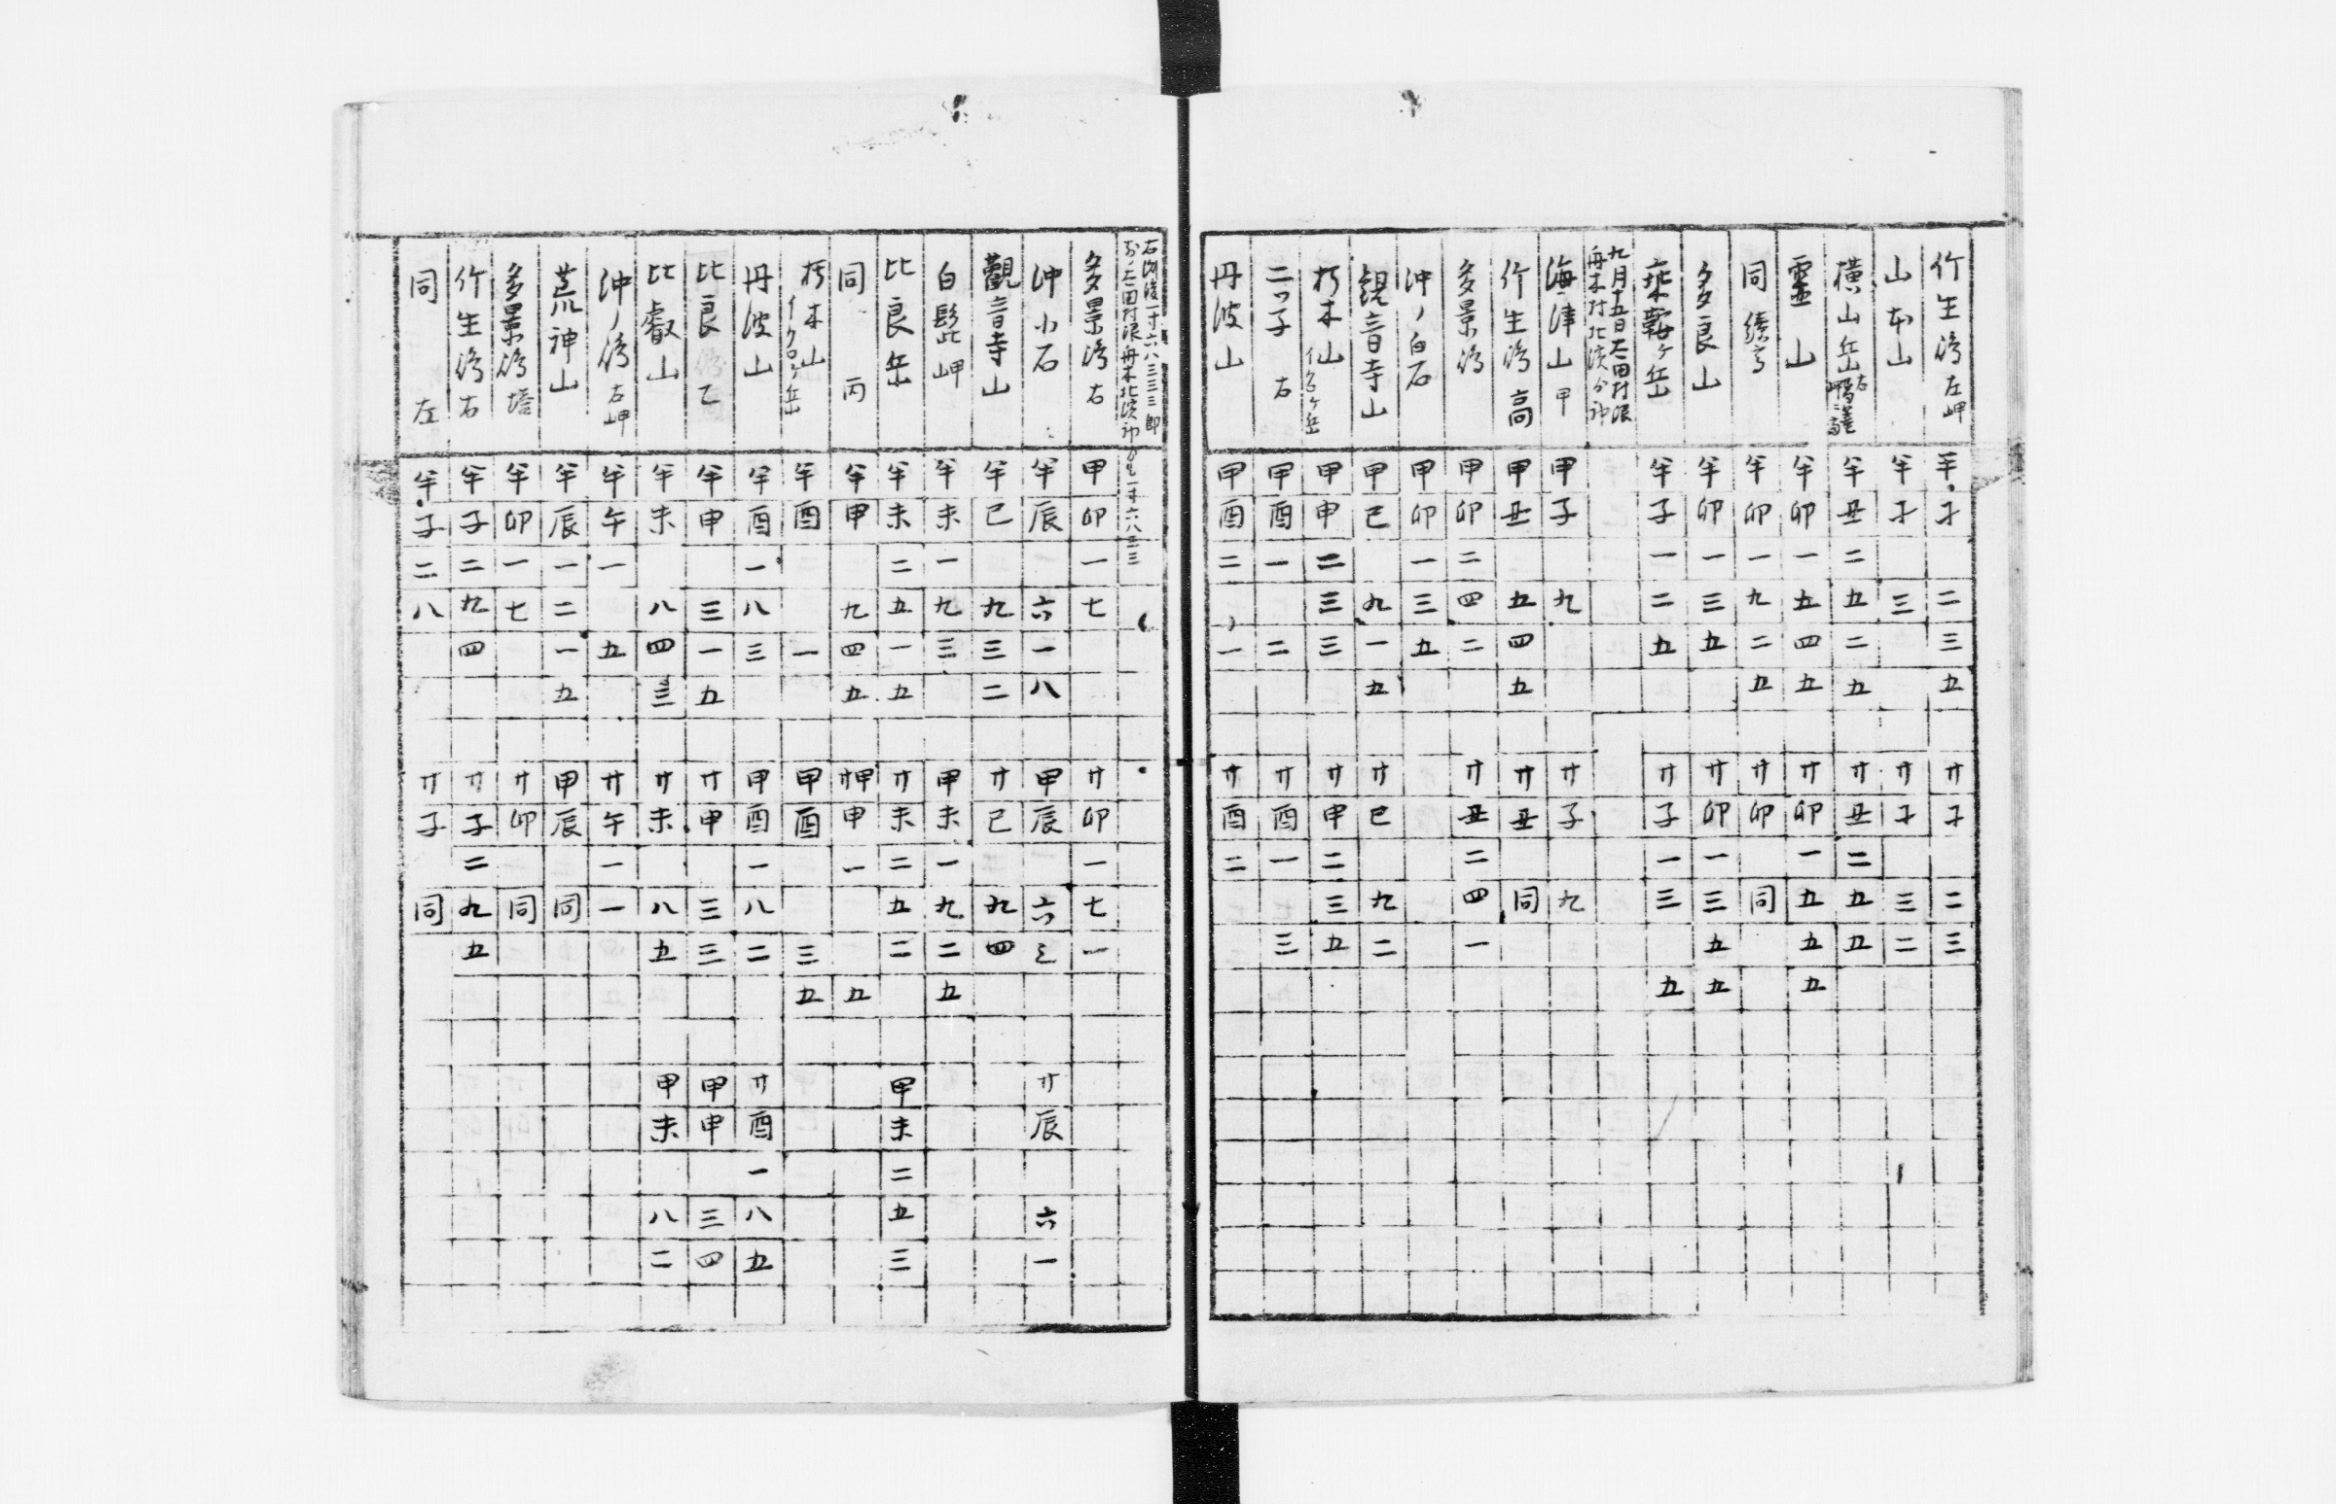 竹生嶋 左岬 半 子 二 三 五 廿 子 二 三
山本山 半 子 三 廿 子 三 二
横山岳 右 半 丑 二 五 二 五 廿 丑 二 五 五
靈山 半 卯 一 五 四 五 廿 卯 一 五 五 五
同 續高 半 卯 一 九 二 五 廿 卯 同
多良山 半 卯 一 三 五 廿 卯 一 三 五 五
乘鞍ケ岳 半 子 一 二 五 廿 子 一 三 五
九月十五日 田村界
舟木村北濱分印
海津山 甲 甲 子 九 廿 子 九
竹生嶋 高 甲 丑 五 四 五 廿 丑 同
多景嶋 甲 卯 二 四 二 廿 丑 二 四 一
沖ノ白石 甲 卯 一 三 五
観音寺山 甲 巳 九 一 五 廿 巳 九 二
朽木山 イクロケ岳 甲 申 二 三 三 廿 申 二 三 五
二ツ子 右 甲 酉 一 二 廿 酉 一 三
丹波山 甲 酉 二 一 廿 酉 二
一寸六八三三三
田村界舟木北濱印 一寸六八三三
多景嶋 右 甲 卯 一 七 廿 卯 一 七 一
沖小石 半 辰 六 一 八 甲 辰 六 廿 辰 六 一
觀音寺山 半 巳 九 三 二 廿 巳 九 四
白髭岬 半 未 一 九 三 甲 未 一 九 二 五
比良岳 半 未 二 五 一 五 廿 未 二 五 二 甲 未 二 五 三
同 丙 半 申 九 四 五 甲 申 一 五
朽木山 イクロケ岳 半 酉 一 甲 酉 三 五
丹波山 半 酉 一 八 三 甲 酉 一 八 二 廿 酉 一 八 五
比良 乙 半 申 三 一 五 廿 申 三 三 甲 申 三 四
比叡山 半 未 八 四 三 廿 未 八 五 甲 未 八 二
沖ノ嶋 右岬 半 午 一 五 廿 午 一 一
荒神山 半 辰 一 二 一 五 甲 辰 同
多景嶋 塔 半 卯 一 七 廿 卯 同
竹生嶋 右 半 子 二 九 四 廿 子 二 九 五
同 左 半 子 二 八 廿 子 同